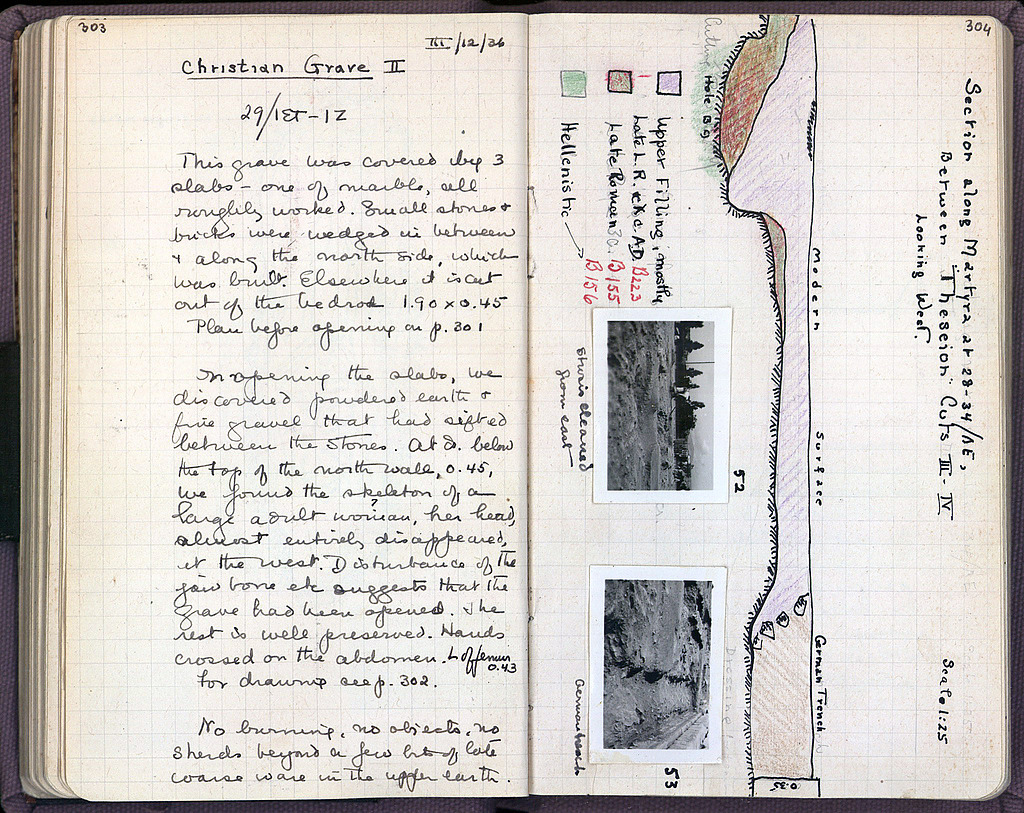 303
III/12/36
Christian Grave II
29/ΙΣΤ-ΙΖ
This grave was covered by 3
slabs - one of marble, all
roughly worked. Small stones &
bricks were wedged in between
& along the north side, which
was built. Elsewhere it is cut
out of the bedrock 1.90 x 0.45
Plan before opening on p. 301
In opening the slabs, we
discovered powdered earth &
fine gravel that had sifted
between the stones. At d. below
the top of the north wall, 0.45,
we found the skeleton of a
large adult woman, her head,
?
almost entirely disappeared,
at the west. Disturbance of the
jaw bone etc suggests that the
grave had been opened. The
rest is well preserved. Hands
crossed on the abdomen. L of femur
0.43
For drawing see p. 302.
No burning, no objects, no
sherds beyond a few bits of late
coarse ware in the upper earth.
304
Section along Martyra at 28-34/ΛΕ,
Between Theseion Cuts III-IV
Looking West.
Scale 1:25
Modern Surface
German Trench
0.35
Hole B 9
Upper Filling, mostly
Late L.R. + c. A.D. B223
Late Roman 3c. B155
Hellenistic → B156
52
Stairs cleaned
from east
53
German trench